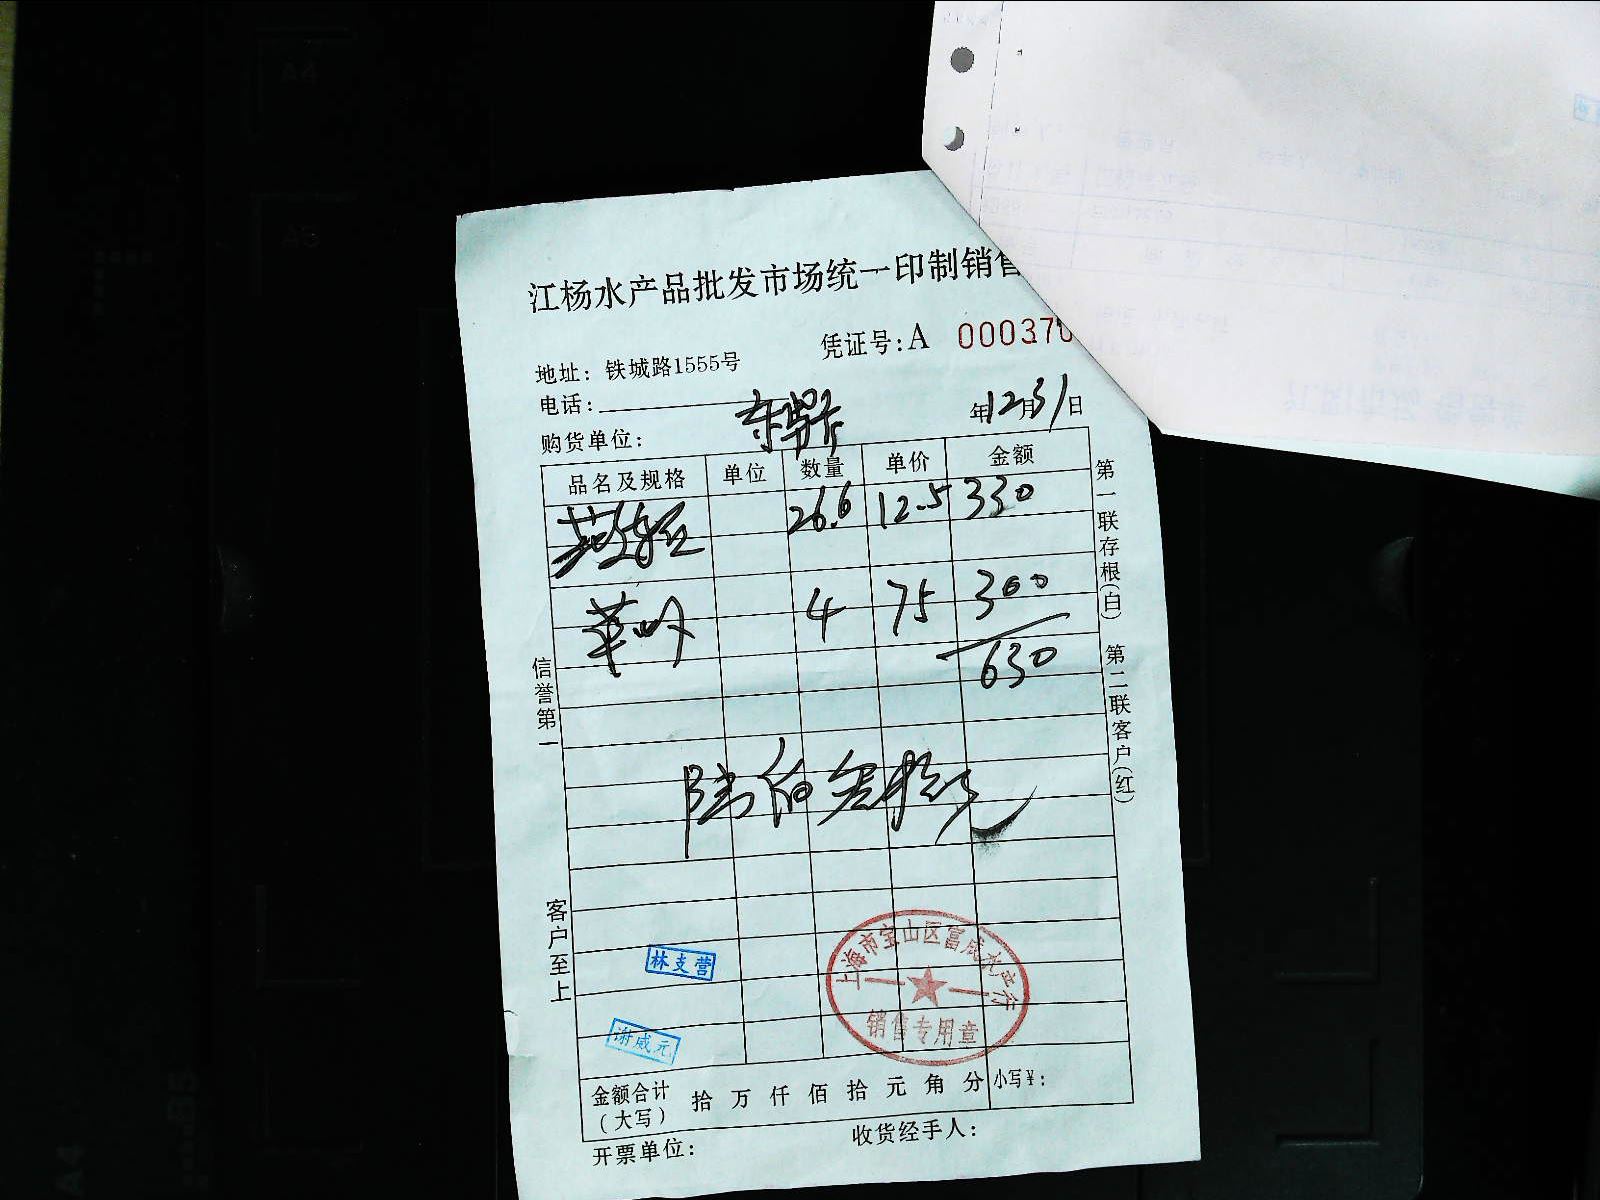 江杨水产品批发市场统一印制销售
凭证号:A 000370
地址: 铁城路1555号
电话:
年12月31日
购货单位:
品名及规格 单位 数量 单价 金额
26.6 12.5 330
4 75 300
630
陆佰叁拾元
第一联存根(白) 第二联客户(红)
信誉第一
客户至上
林支营
谢威元
上海市宝山区富成水产行
销售专用章
金额合计(大写) 拾 万 仟 佰 拾 元 角 分 小写¥:
开票单位: 收货经手人: